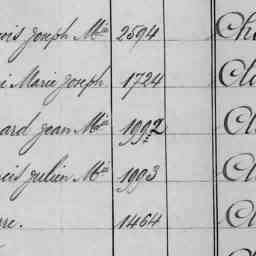 ois Joseph Mie 2594 Ch
i Marie Joseph 1724 Cl
ard Jean Mie 1992 Cl
cis Julien Mie 1993 Cl
re. 1464 C